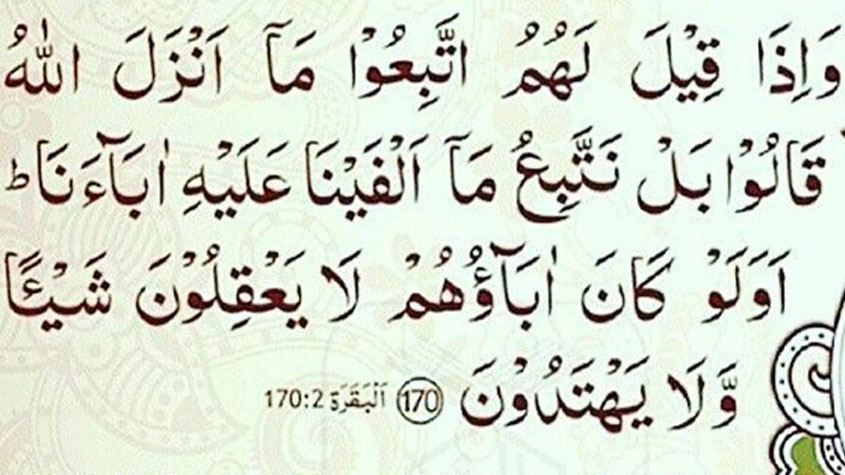 وَاِذَا قِيْلَ لَهُمُ اتَّبِعُوْا مَآ اَنْزَلَ اللّٰهُ
قَالُوْا بَلْ نَتَّبِعُ مَآ اَلْفَيْنَا عَلَيْهِ اٰبَآءَنَا ؕ
اَوَلَوْ كَانَ اٰبَآؤُهُمْ لَا يَعْقِلُوْنَ شَيْـًٔا
وَّلَا يَهْتَدُوْنَ 170 اَلْبَقَرَة 170:2